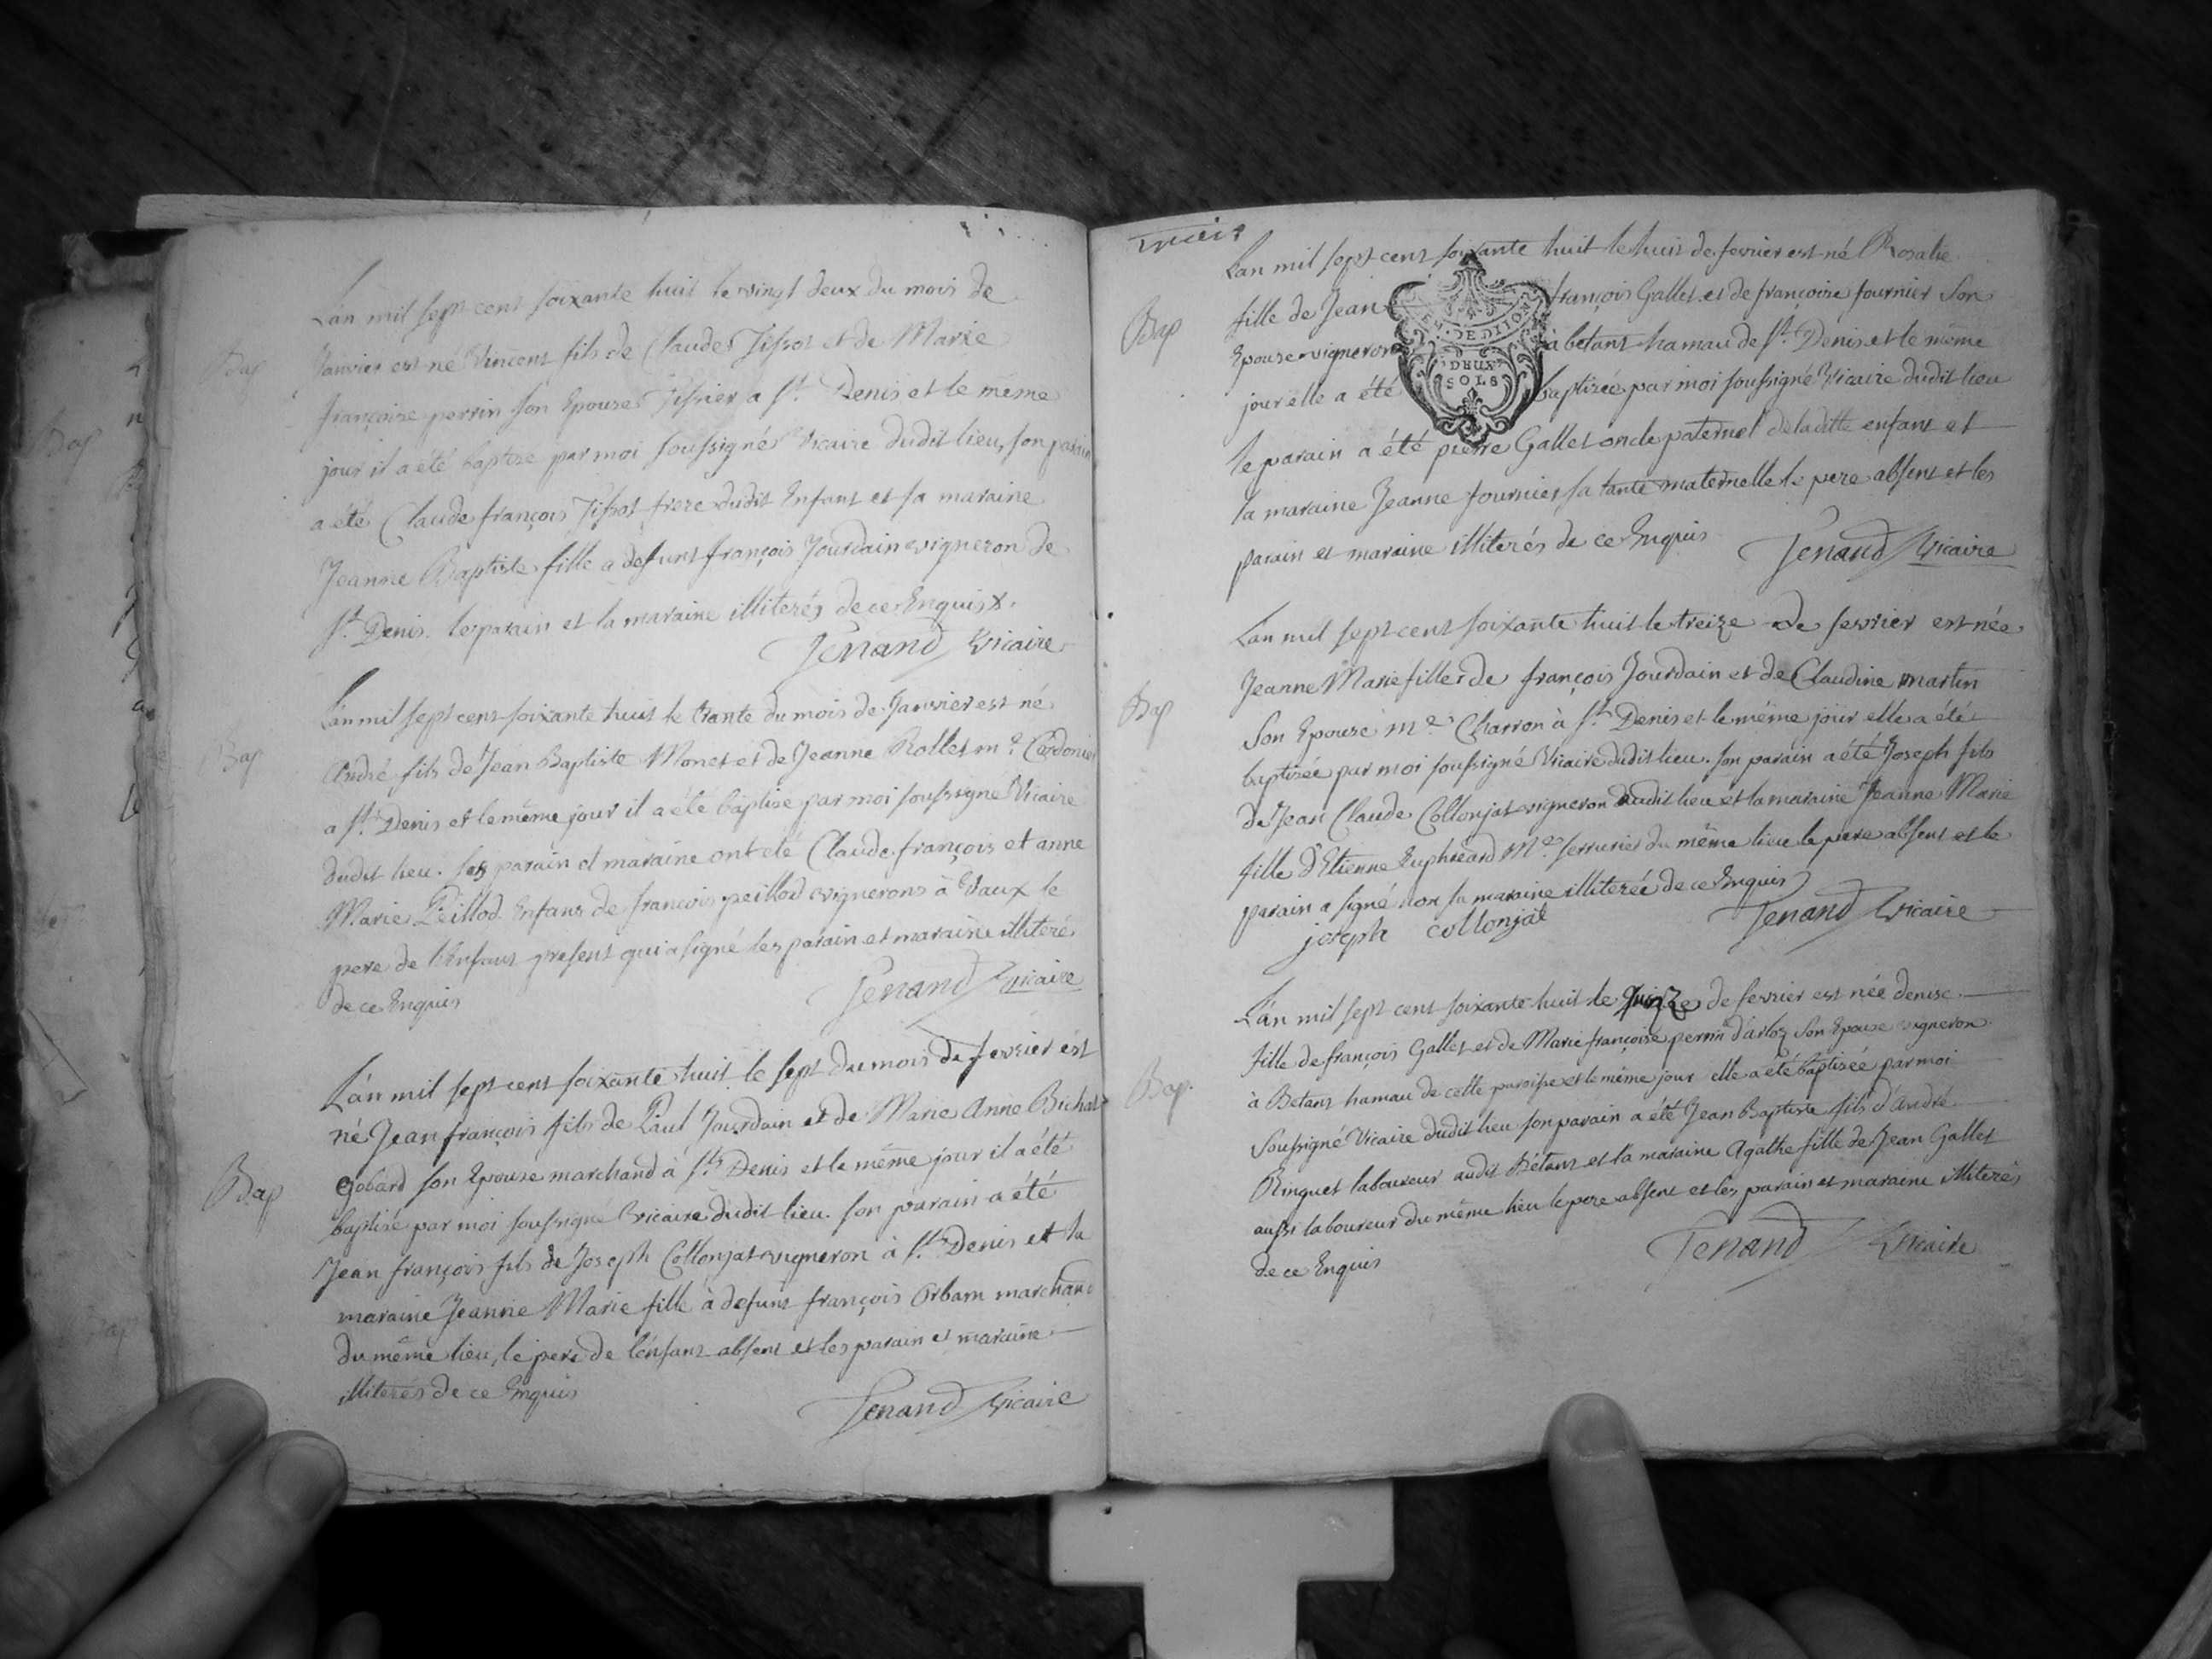 Bap
L'an mil sept cent soixante huit le vingt deux du mois de
Janvier est né Vincent fils de Claude Tissot et de Marie
françoise perrin son Epouse Tissier a St. Denis et le même
jour il a été baptisé par moi soussigné Vicaire dudit lieu, son parain
a été Claude françois Tissot frere dudit Enfant et sa maraine
Jeanne Baptiste fille a defunt françois Jourdain vigneron de
St. Denis. les parain et la maraine illiterés de ce Enquis
Jenand Vicaire
Bap
L'an mil sept cent soixante huit le trante du mois de Janvier est né
André fils de Jean Baptiste Monet et de Jeanne Rollet me. Cordonier
a St. Denis et le même jour il a été baptisé par moi soussigné Vicaire
dudit lieu. ses parain et maraine ont été Claude françois et anne
Marie Peillod Enfans de françois peillod vignerons à Vaux le
pere de l'Enfant present qui a signé les parain et maraine illiteré
de ce Enquis
Jenand Vicaire
Bap
L'an mil sept cent soixante huit le sept du mois de fevrier est
né Jean françois fils de Paul Jourdain et de Marie Anne Bichat
Gobard son Epouse marchand à St. Denis et le même jour il a été
baptisé par moi soussigné Vicaire dudit lieu. son parain a été
Jean françois fils de Joseph Collonjat vigneron à St. Denis et la
maraine Jeanne Marie fille à defunt françois Orban marchand
du même lieu, le pere de l'enfant absent et les parain et maraine
illiterés de ce Enquis
Jenand Vicaire
L'an mil sept cent soixante huit le huit de fevrier est né Rosalie
Bap
fille de Jean françois Gallet et de françoise fournier son
Epouse vigneron à betant hamau de St. Denis et le même
jour elle a été baptisée par moi soussigné Vicaire dudit lieu
EN. DE DIJON
DEUX
SOLS
le parain a été pierre Gallet oncle paternel de laditte enfant et
la maraine Jeanne fournier sa tante maternelle le pere absent et les
parain et maraine illiterés de ce Enquis
Jenand Vicaire
L'an mil sept cent soixante huit le treize de fevrier est née
Bap
Jeanne Marie fille de françois Jourdain et de Claudine martin
Son Epouse me. Charron à St. Denis et le même jour elle a été
baptisée par moi soussigné Vicaire dudit lieu. son parain a été Joseph fils
de Jean Claude Collonjat vigneron dudit lieu et la maraine Jeanne Marie
fille d'Etienne Me. serrurier du même lieu le pere absent et le
parain a signé non la maraine illiterée de ce Enquis
joseph collonjat
Jenand Vicaire
L'an mil sept cent soixante huit le quinze de fevrier est née denise
Bap.
fille de françois Gallet et de Marie françoise perrin d'arloz Son Epouse vigneron
à Betant hamau de cette paroisse et le même jour elle a été baptisée par moi
Soussigné Vicaire dudit lieu son parain a été Jean Baptiste fils d'André
Ringuet laboureur audit Bétant et la maraine Agathe fille de Jean Gallet
aussi laboureur du même lieu le pere absent et les parain et maraine illiterés
de ce Enquis
Jenand Vicaire